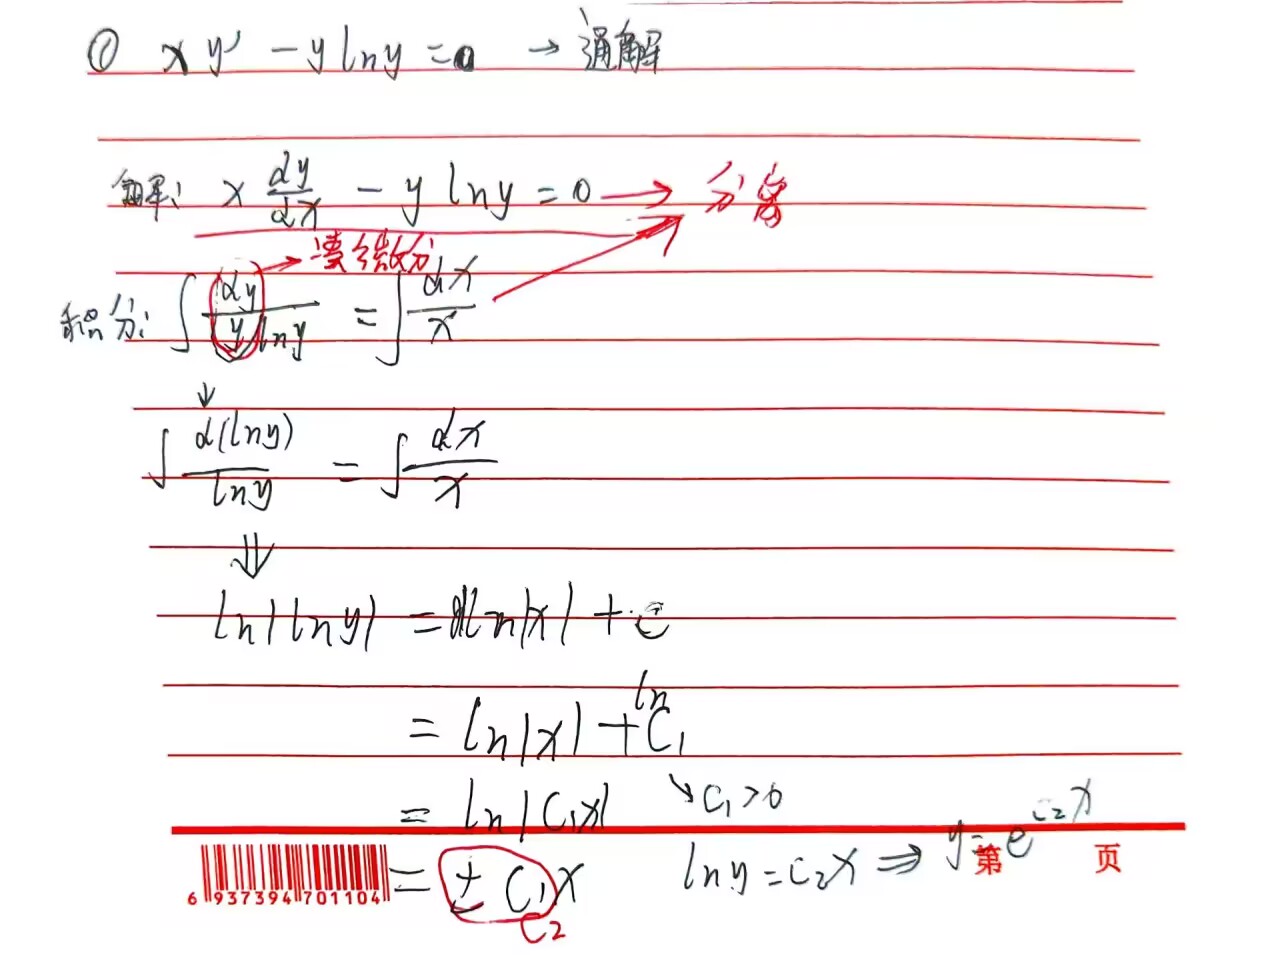 ① xy' - y ln y = 0 → 通解
解: x dy/dx - y ln y = 0 → 分离
凑微分
积分: ∫ dy/(y ln y) = ∫ dx/x
↓
∫ d(ln y)/ln y = ∫ dx/x
⇓
ln|ln y| = ln|x| + C
= ln|x| + ln C₁
= ln|C₁x| ↘ C₁>0
= ± C₁x ln y = C₂x ⇒ y = e^(C₂x)
C₂
第 页
6 937394 701104